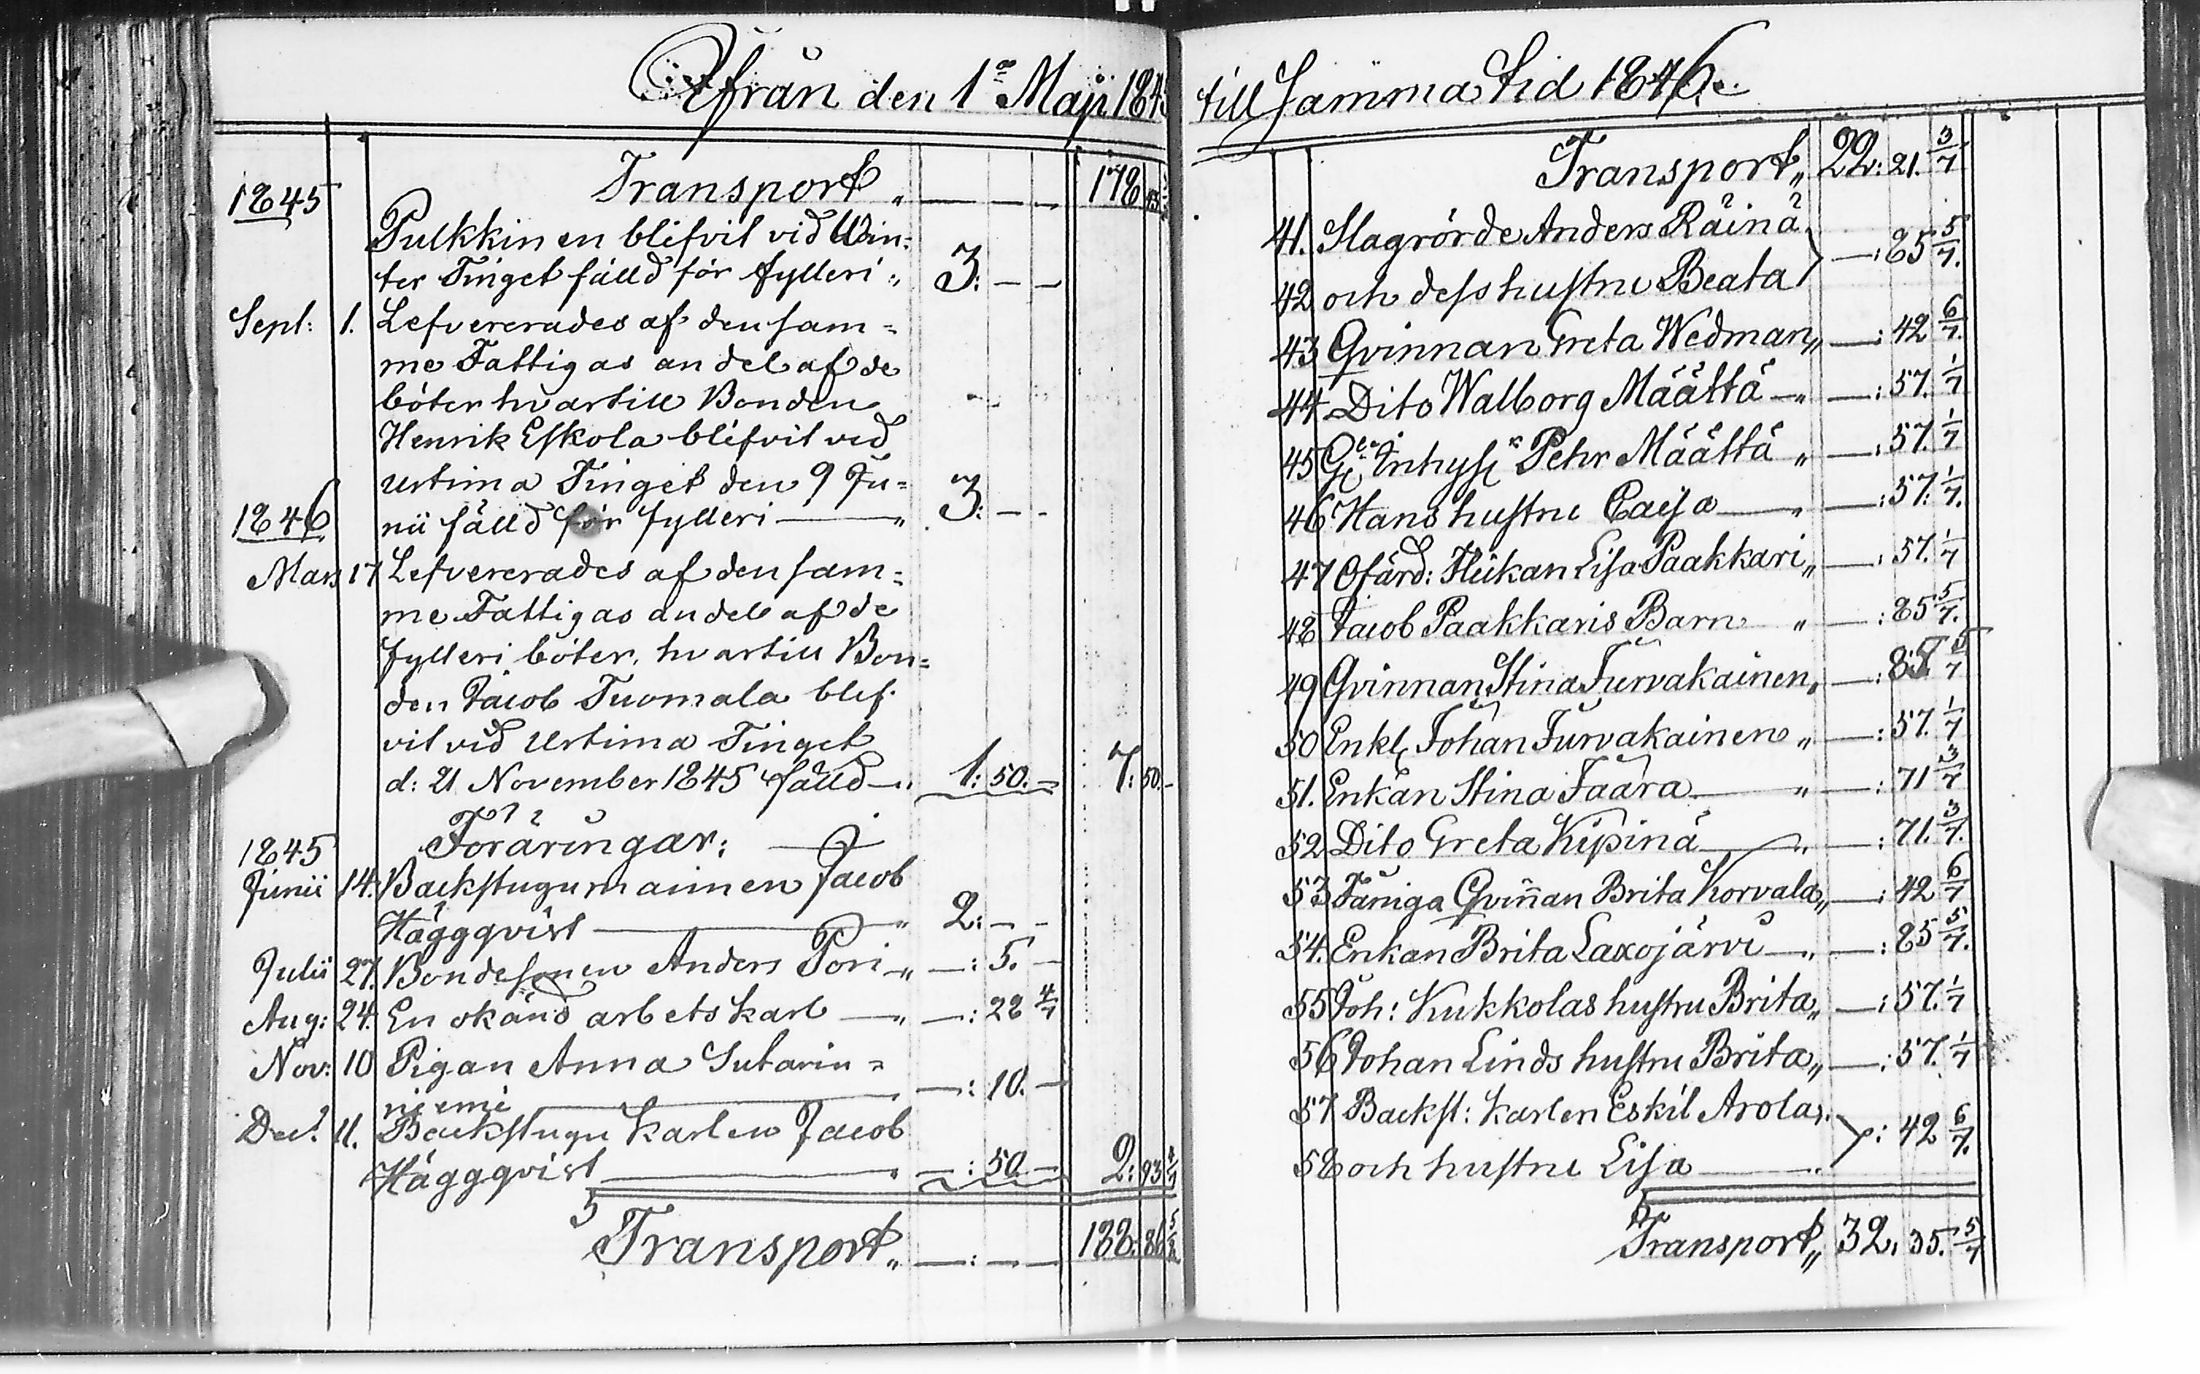 Ifrån den 1:a Maji 1845
Transport „ — — — 178
1845
Pulkkinen blifvit vid Win:
ter Tinget fälld för fylleri „ 3: — —
Sept: 1. Lefvererades af den sam=
me Fattigas andel af de
böter hvartill Bonden
Henrik Eskola blifvit vid
Urtima Tinget den 9 Ju=
1846 nii fälld för fylleri — „ 3: — —
Mars 17 Lefvererades af den sam=
me Fattigas andel af de
fylleri böter, hvartill Bon=
den Jacob Tuomala blif
vit vid Urtima Tinget
d: 21 November 1845 fälld — „ 1: 50. — 7: 50. —
Föräringar:
1845
Junii 14. Backstugumannen Jacob
Häggqvist — „ 2: — —
Julii 27. Bondesonen Anders Pori — „ — : 5. —
Aug: 24. En okänd arbetskarl — „ — : 28 4/7
Nov: 10 Pigan Anna Sutarin=
niemi — — : 10. —
Dec: 11. Backstugu Karlen Jacob
Häggqvist — „ — : 50 — 2: 93 4/7
Transport „ — : — — 188: 86 5/7
till samma tid 1846.
Transport „ 22: 21. 3/7
41. Slagrörde Anders Räinä
42 och dess hustru Beata } — : 85 5/7.
43 Qvinnan Greta Wedman „ — : 42 6/7.
44 Dito Walborg Määttä — „ — : 57. 1/7
45 Inhys: Pehr Määttä „ — : 57. 1/7
46 Hans hustru Caisa — „ — : 57. 1/7.
47 Ofärd: Flickan Lisa Paakkari „ — : 57. 1/7
48 Jacob Paakkaris Barn „ — : 85 5/7.
49 Qvinnan Stina Turvakainen „ — : 85 5/7
50 Enkl. Johan Turvakainen „ — : 57. 1/7
51. Enkan Stina Taara — „ — : 71 3/7
52 Dito Greta Kipinä — „ — : 71. 3/7.
53 Faniga Qvinnan Brita Korvala „ — : 42 6/7
54. Enkan Brita Laxojärvi — „ — : 85 5/7.
55 Joh: Kukkolas hustru Brita „ — : 57. 1/7
56 Johan Linds hustru Brita „ — : 57. 1/7
57 Backst: Karlen Eskil Arola
58 och hustru Lisa — „ } : 42 6/7.
Transport „ 32. 35. 5/7